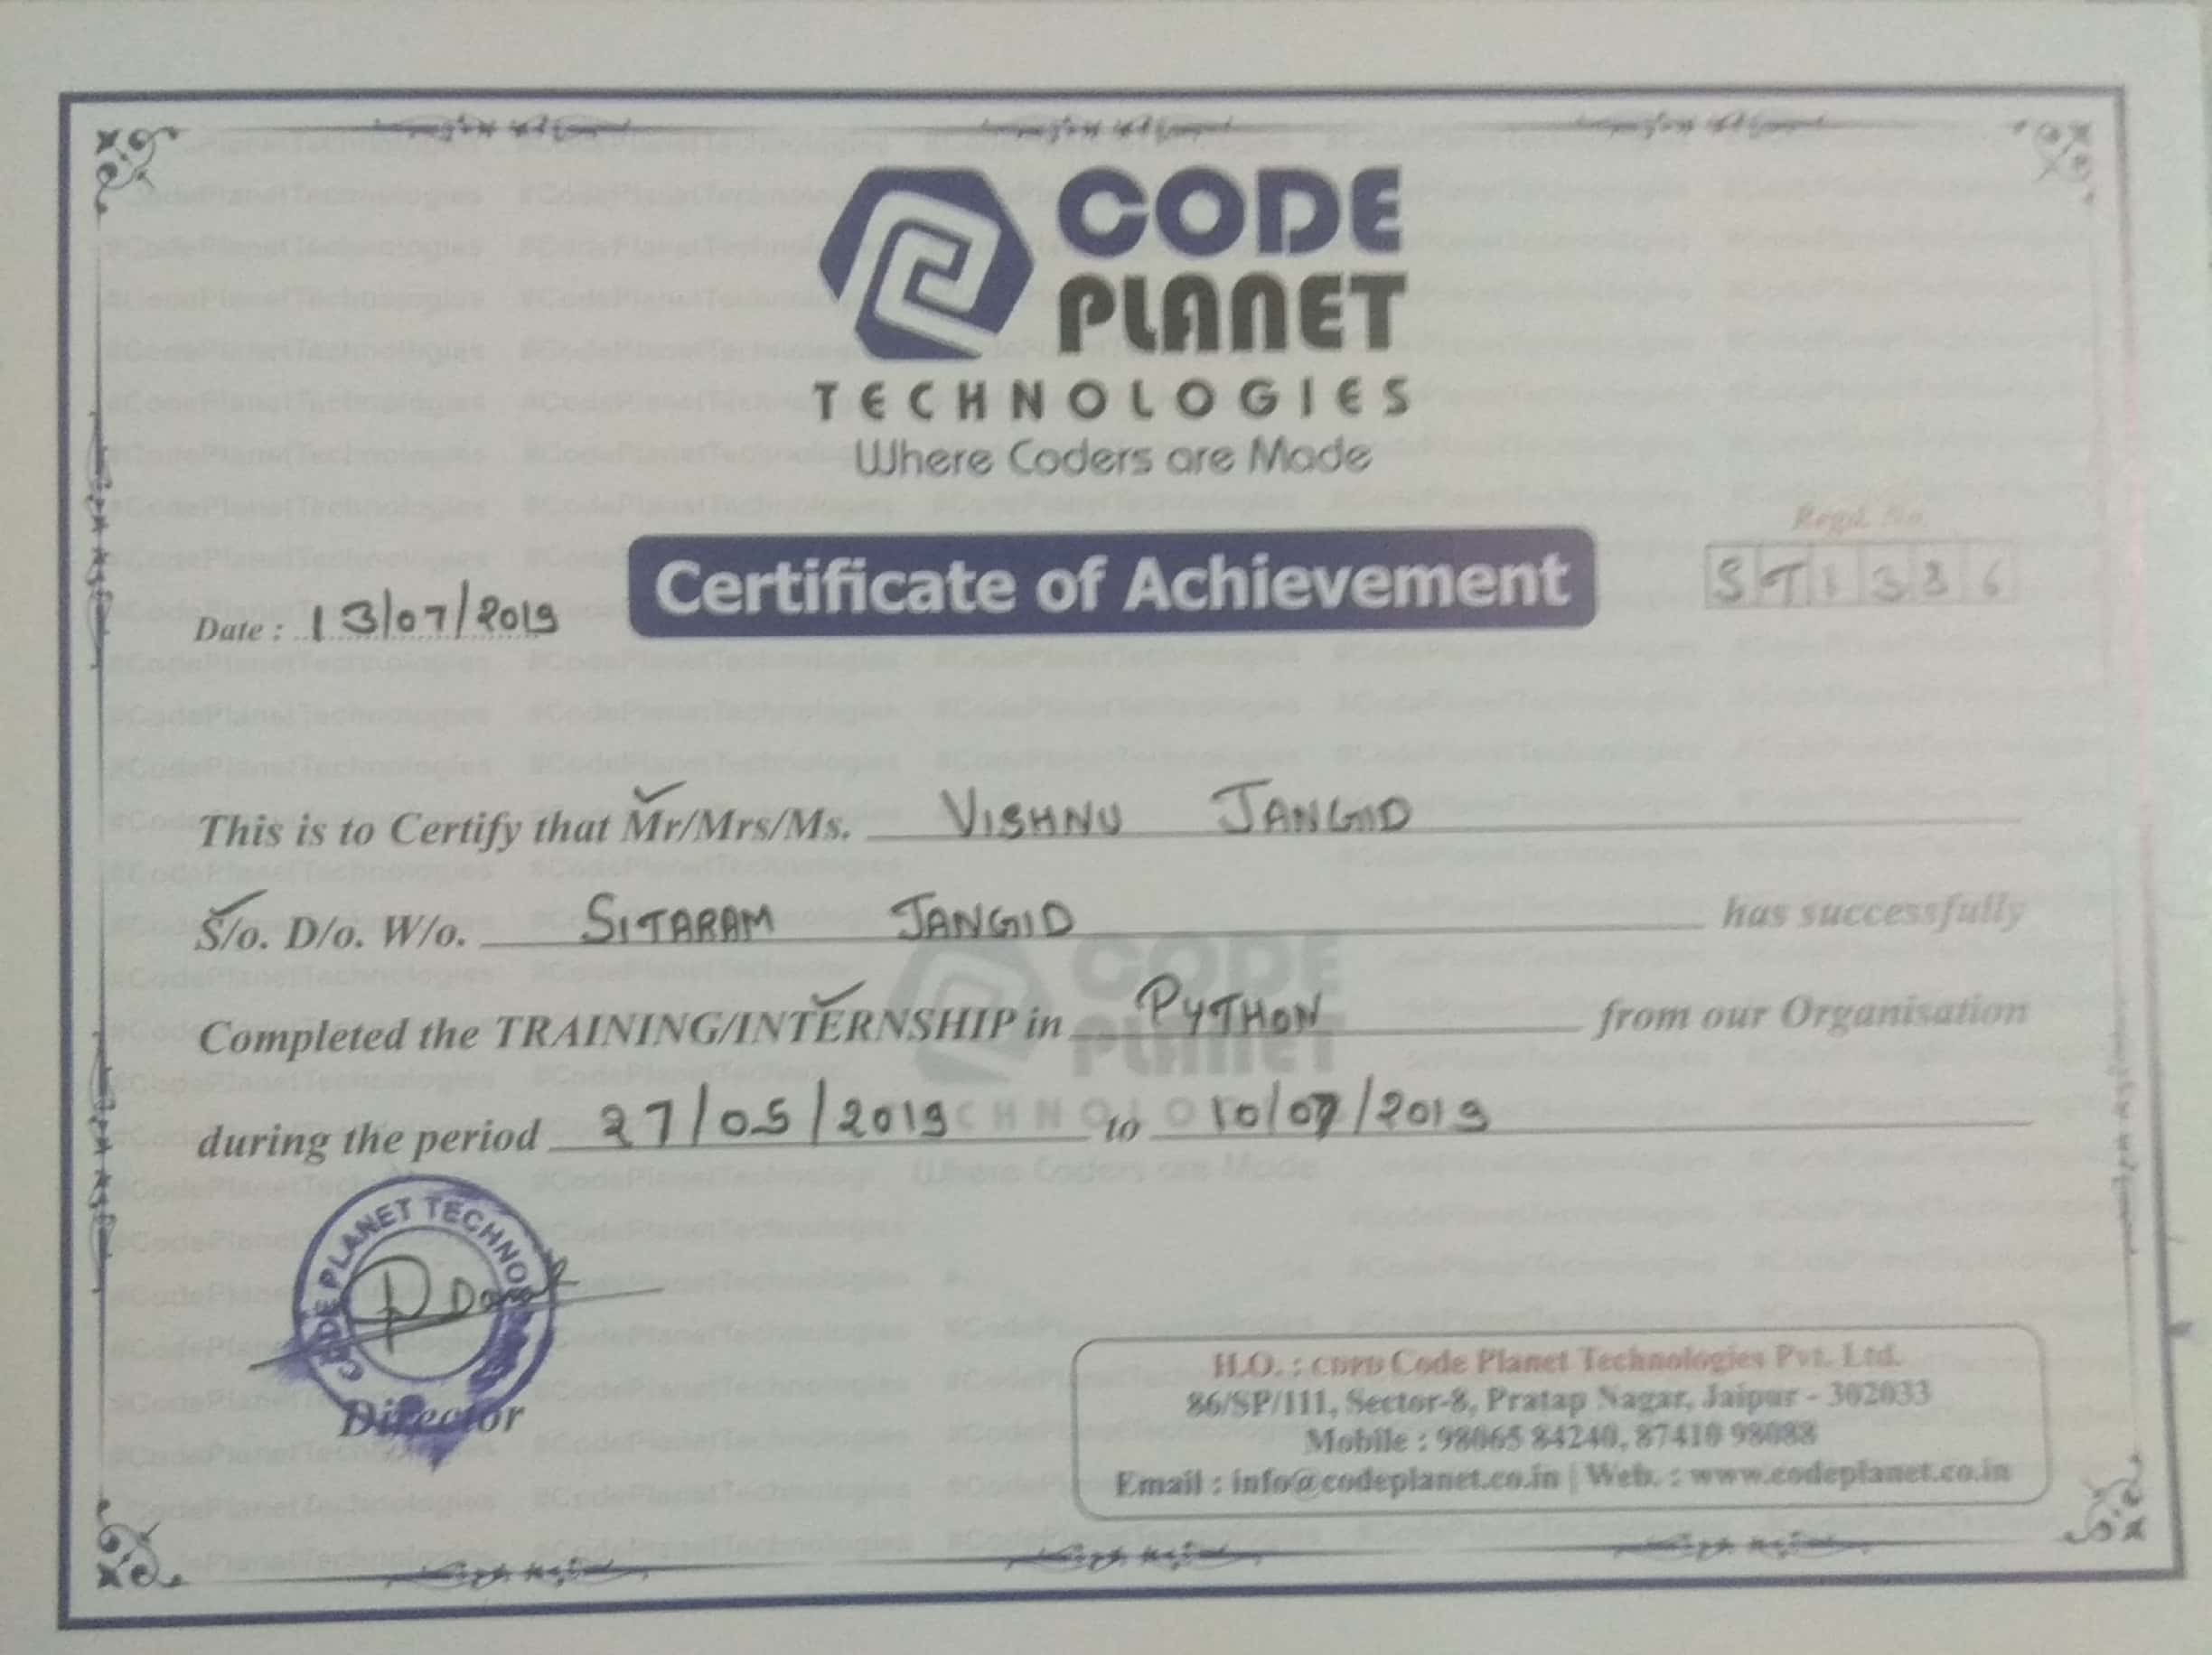 CODE
PLANET
TECHNOLOGIES
Where Coders are Made
Regd. No.
Certificate of Achievement
ST1336
Date : 13/07/2019
This is to Certify that Mr/Mrs/Ms. VISHNU JANGID
S/o. D/o. W/o. SITARAM JANGID has successfully
Completed the TRAINING/INTERNSHIP in PYTHON from our Organisation
during the period 27/05/2019 to 10/07/2019
CODE PLANET TECHNOLOGIES
Director
H.O. : CDPD Code Planet Technologies Pvt. Ltd.
86/SP/111, Sector-8, Pratap Nagar, Jaipur - 302033
Mobile : 98065 84240, 87410 98088
Email : info@codeplanet.co.in | Web. : www.codeplanet.co.in